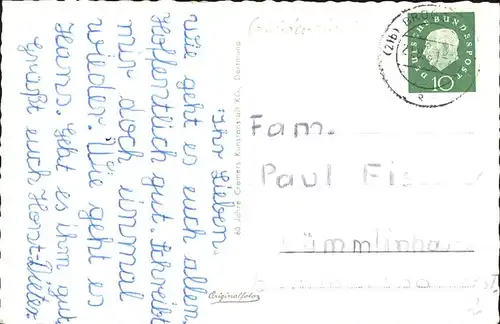 Ihr Lieben.
Wie geht es euch allen.
Hoffentlich gut. Schreibt
mir doch einmal
wieder. Wie geht es
Hans. Geht es ihm gut.
Grüßt euch Horst-Dieter.
60 Jahre Cramers Kunstanstalt KG., Dortmund
Originalfoto
DEUTSCHE BUNDESPOST
10
(21b)
Fam.
Paul